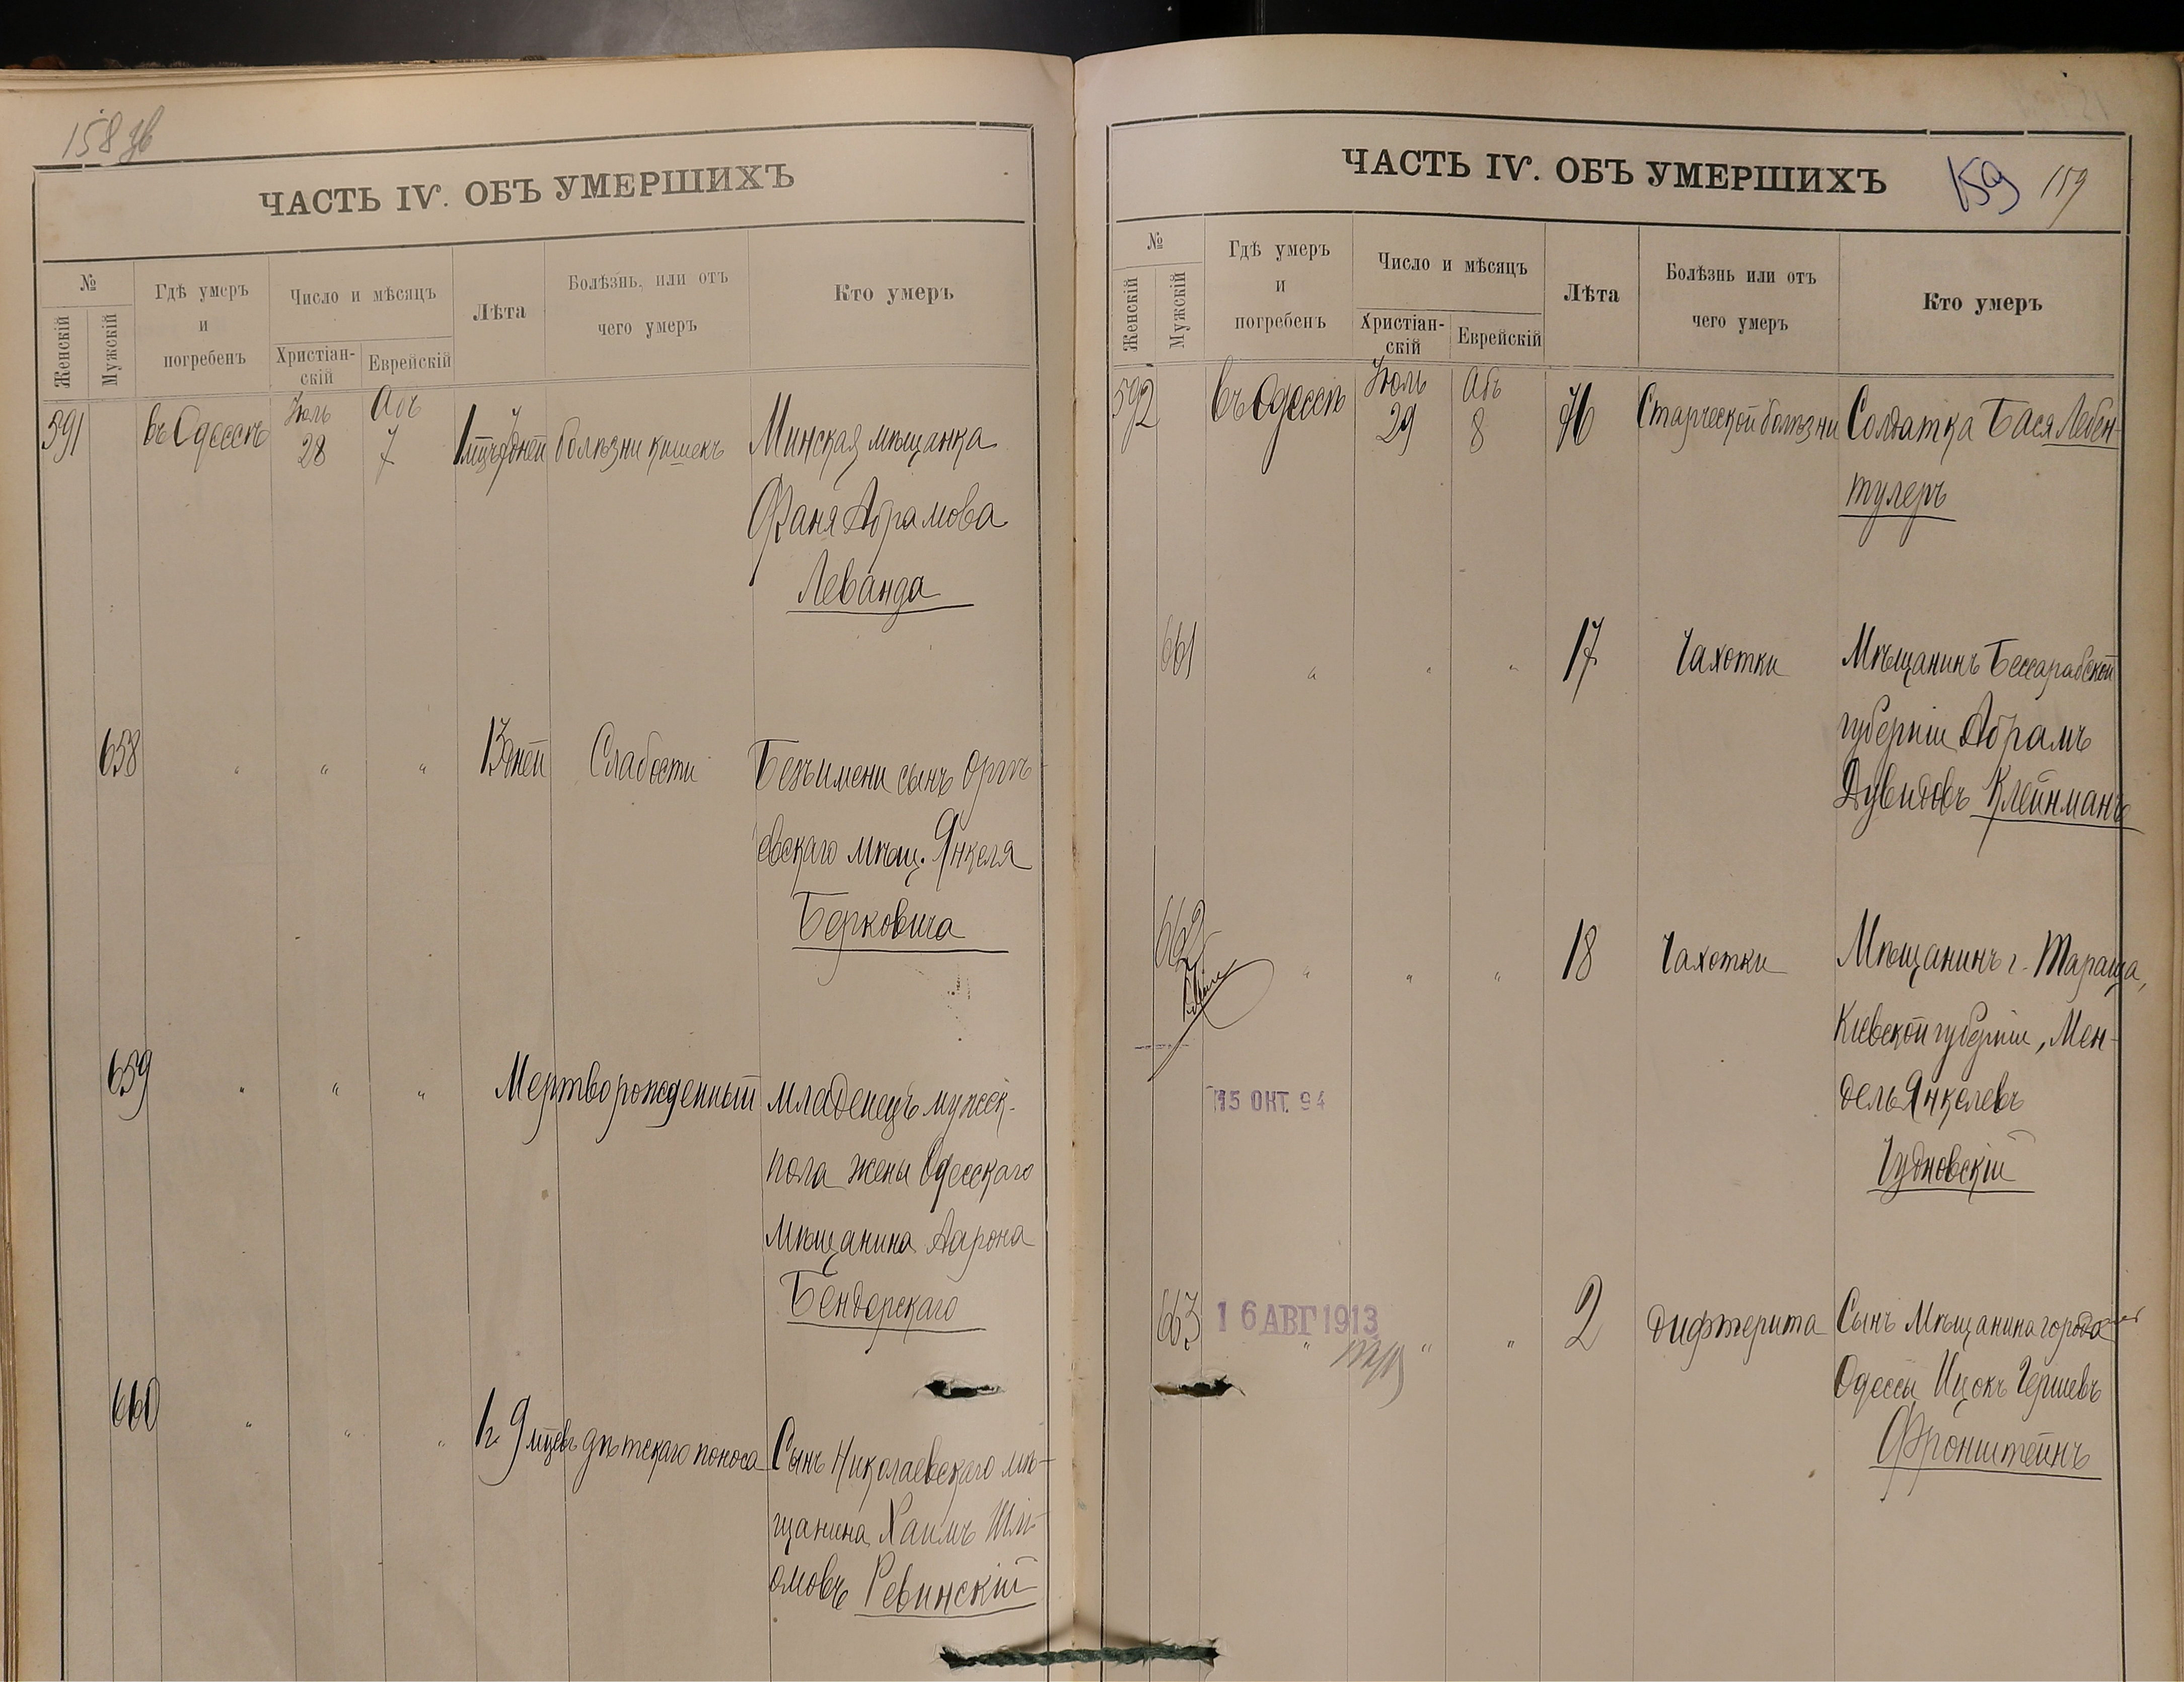 158 об
ЧАСТЬ IV. ОБЪ УМЕРШИХЪ
№
Женскій
Мужскій
Гдѣ умеръ
и
погребенъ
Число и мѣсяцъ
Христіан-
скій
Еврейскій
Лѣта
Болѣзнь, или отъ
чего умеръ
Кто умеръ
591 въ Одессѣ Іюль 28 Абъ 7 1 мцъ дней болѣзни кишекъ Минская мѣщанка
Фаня Абрамова
Леванда
658 " " " 13 дней Слабости Безъ имени сынъ Оргѣ-
евскаго мѣщ. Янкеля
Берковича
659 " " " Мертворожденный младенецъ мужск.
пола жены Одесскаго
Мѣщанина Аарона
Бендерскаго
660 " " " 1 г. 9 мцевъ дѣтскаго поноса Сынъ Николаевскаго мѣ-
щанина Хаимъ Шлі-
омовъ Ревинскій
ЧАСТЬ IV. ОБЪ УМЕРШИХЪ
159 159
№
Женскій
Мужскій
Гдѣ умеръ
и
погребенъ
Число и мѣсяцъ
Христіан-
скій
Еврейскій
Лѣта
Болѣзнь или отъ
чего умеръ
Кто умеръ
592 въ Одессѣ Іюль 29 Абъ 8 76 Старческой болѣзни Солдатка Бася Лебен-
тулеръ
661 " " " 17 Чахотки Мѣщанинъ Бессарабской
губерніи Абрамъ
Дувидовъ Клейманъ
662 " " " 18 Чахотки Мѣщанинъ г. Тараща,
Кіевской губерніи, Мен-
дель Янкелевъ
15 ОКТ. 94
Чудновскій
663 " " " 2 дифтерита Сынъ Мѣщанина города
16 АВГ 1913
Одессы Ицокъ Гершевъ
Фронштейнъ